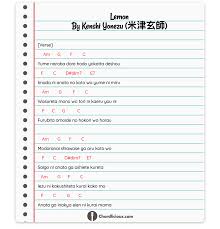 Lemon
By Kenshi Yonezu (米津玄師)
[Verse]
Am G F C
Yume naraba dore hodo yokatta deshou
F C D#dim7 E7
Imada ni anata no koto wo yume ni miru
Am G F C
Wasureta mono wo tori ni kaeru you ni
F C G C
Furubita omoide no hokori wo harau
Am G F C
Modoranai shiawase ga aru koto wo
F C D#dim7 E7
Saigo ni anata ga oshiete kureta
Am G F C
Iezu ni kakushiteta kurai kako mo
F C G C
Anata ga inakya eien ni kurai mama
Chordicious.com